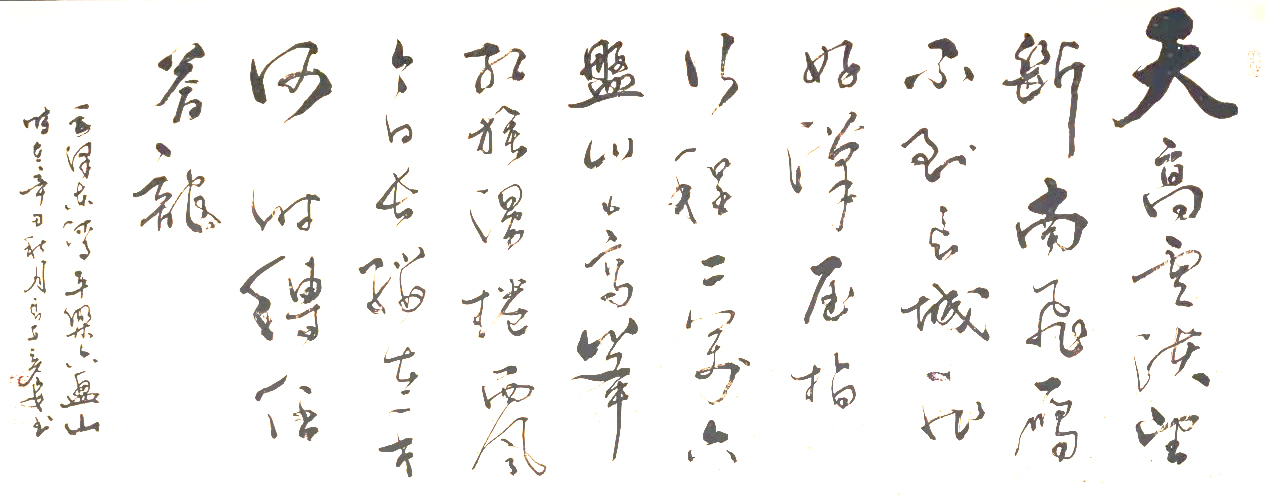 天高雲淡望
斷南飛雁
不到長城非
好漢屈指
行程二萬六
盤山上高峯
紅旗漫捲西風
今日長纓在手
何時縛住
蒼龍
毛澤東清平樂六盤山
時在辛丑秋月書